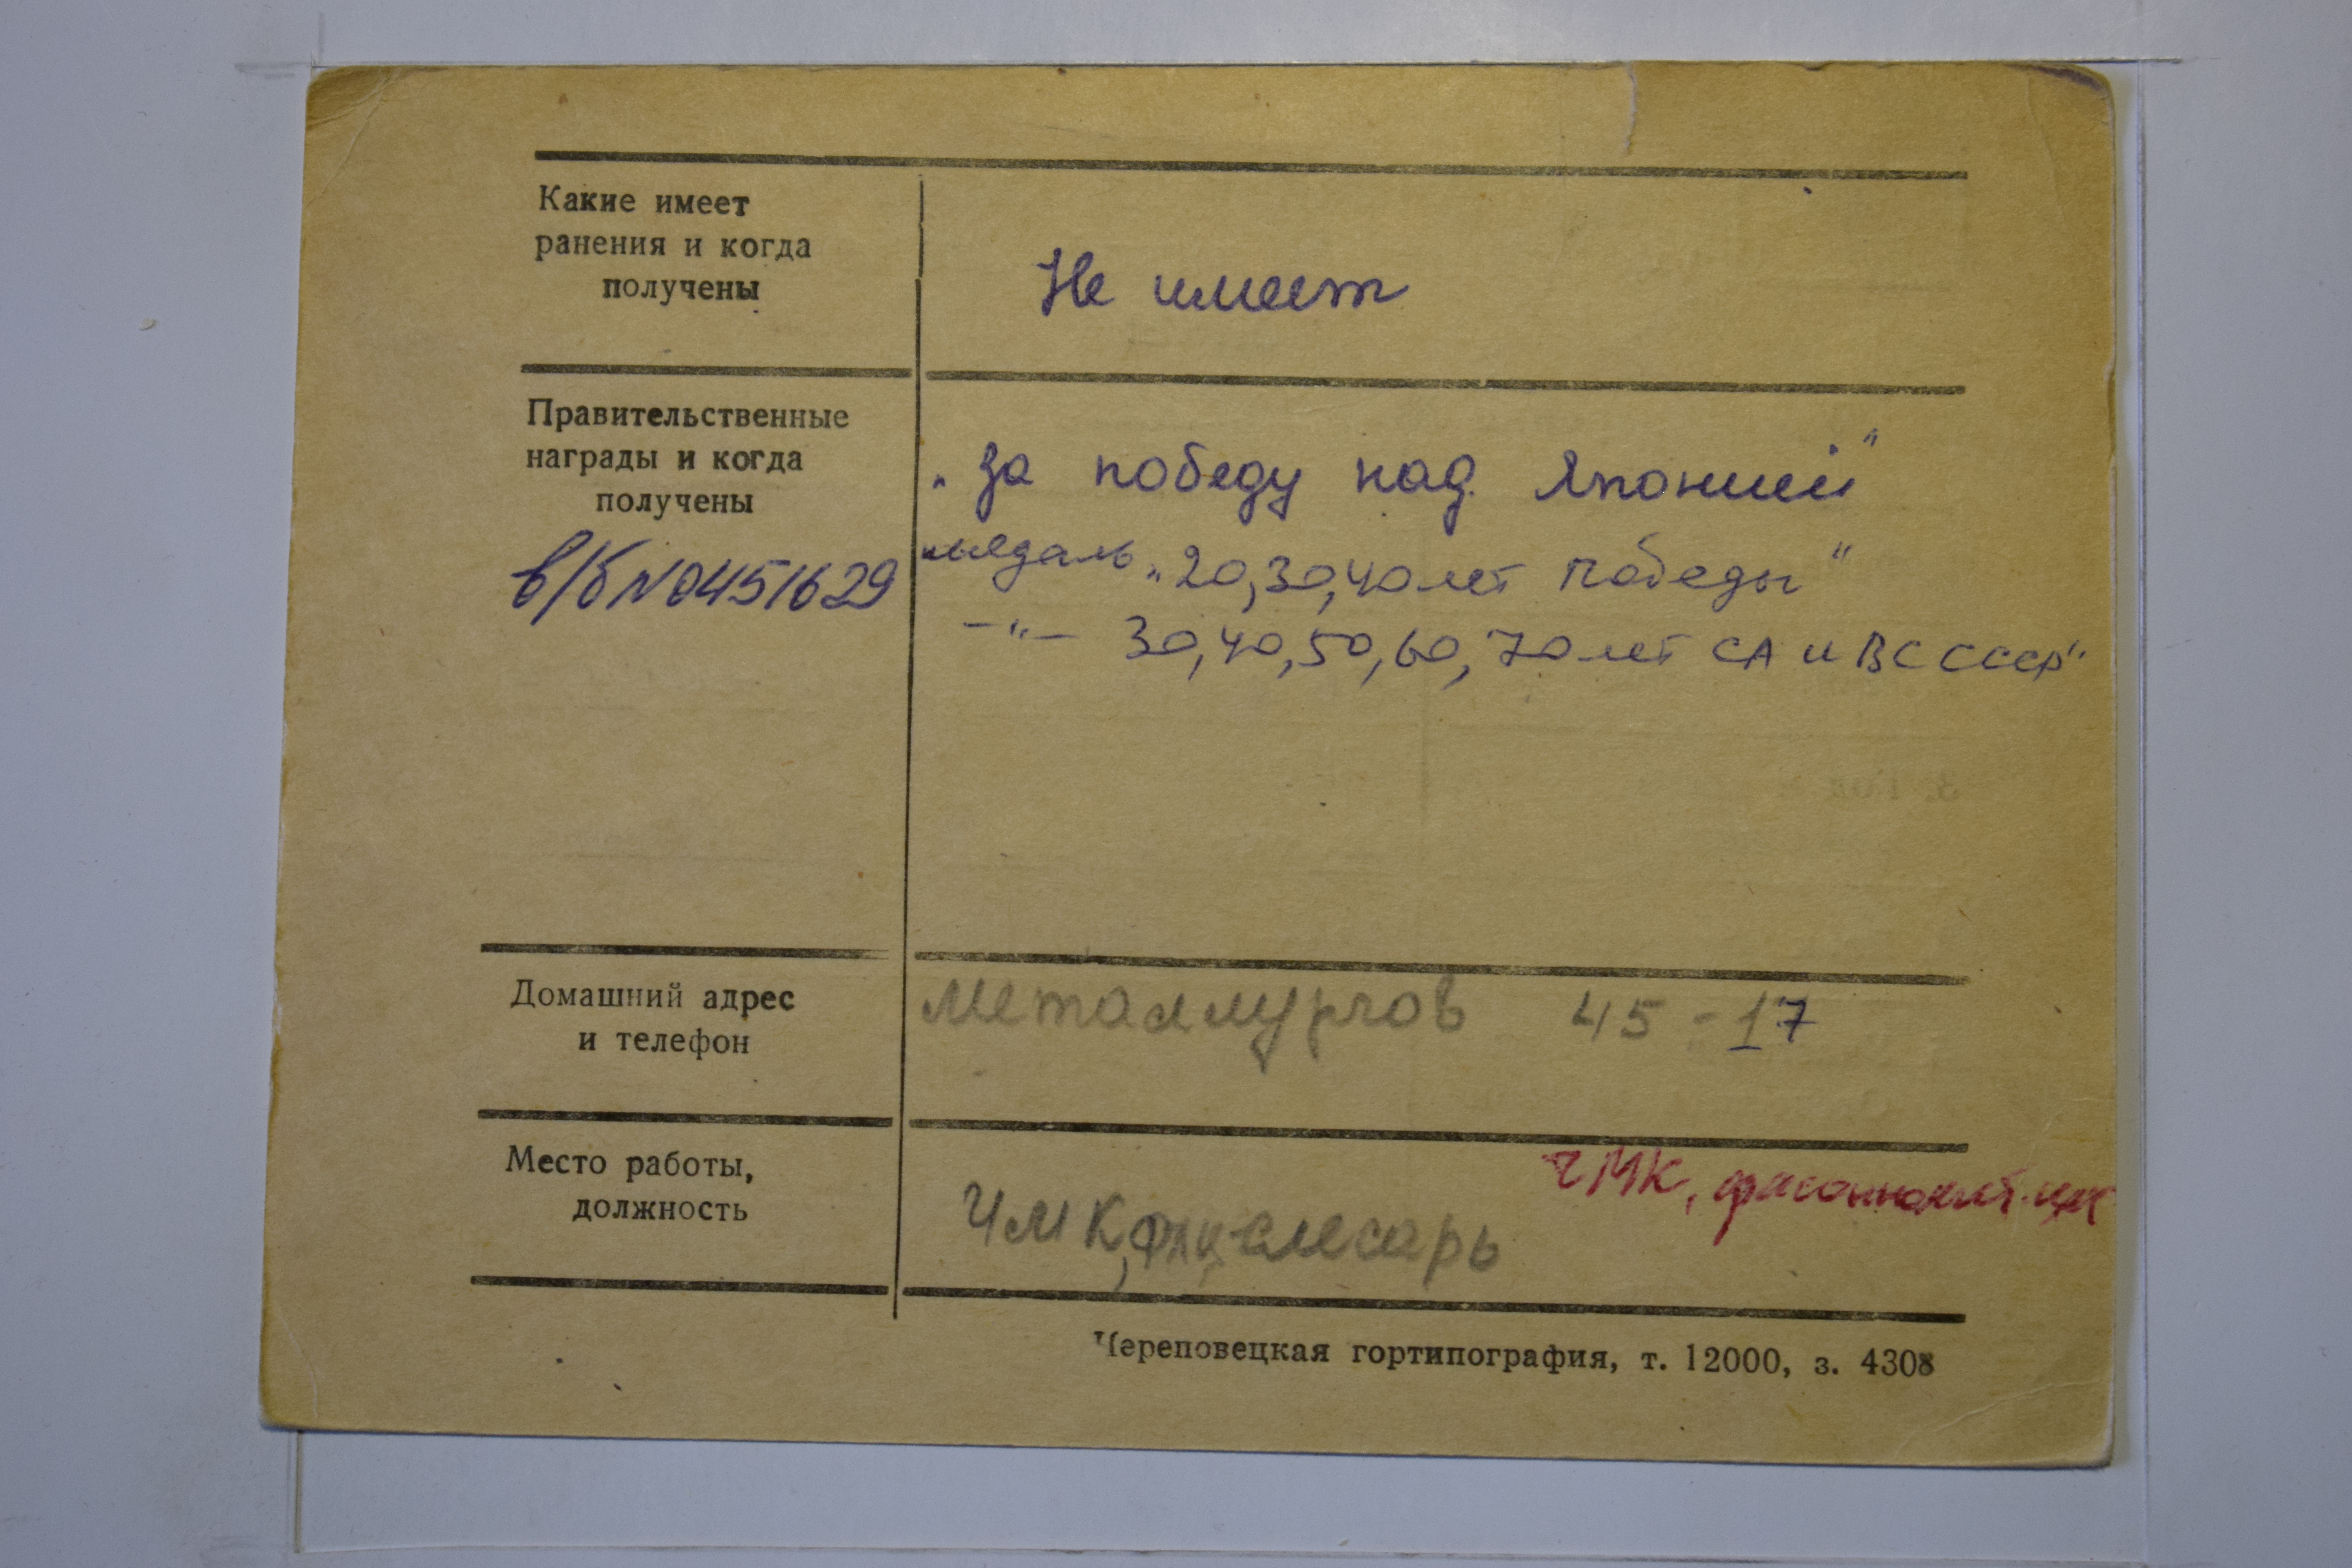 Какие имеет
ранения и когда
получены
Не имеет
Правительственные
награды и когда
получены
в/б №0451629
„За победу над Японией"
медаль „20,30,40 лет Победы"
-"- 30,40,50,60,70 лет СА и ВС СССР"
Домашний адрес
и телефон
Металлургов 45-17
Место работы,
должность
ЧМК,
ЧМК, слесарь
Череповецкая гортипография, т. 12000, з. 4308